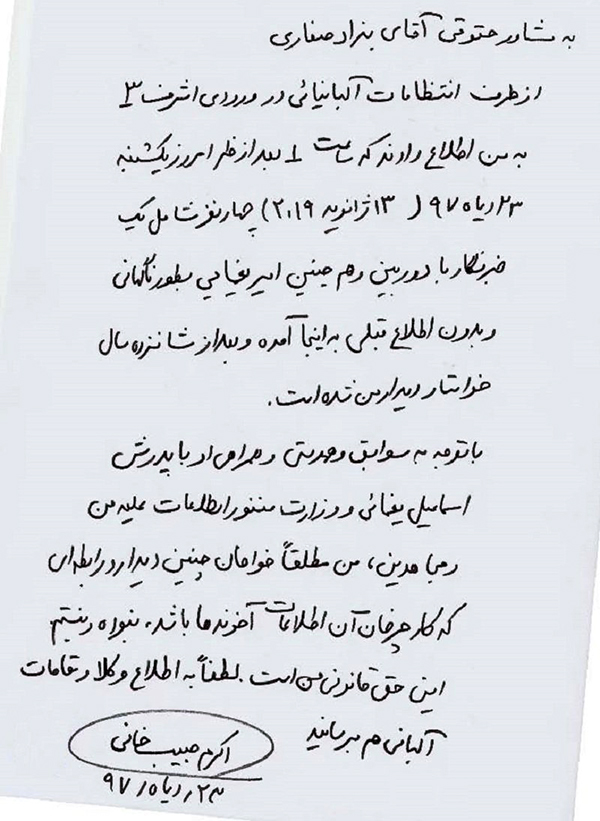 به مشاور حقوقی آقای بهزاد صفاری
از طرف انتظامات آلبانیائی در ورودی اشرف ۳
به من اطلاع دادند که ساعت ۱ بعد از ظهر امروز یکشنبه
۲۳ دیماه ۹۷ ( ۱۳ ژانویه ۲۰۱۹) چهار نفر شامل یک
خبرنگار با دوربین و هم چنین امیر یغمایی بطور ناگهانی
و بدون اطلاع قبلی به اینجا آمده و بعد از شانزده سال
خواستار دیدار من شده است.
با توجه به سوابق و همدستی و همراهی او با پدرش
اسماعیل یغمائی و وزارت منفور اطلاعات علیه من
و مجاهدین، من مطلقاً خواهان چنین دیدار و رابطه ای
که کارچرخان آن اطلاعات آخوندها باشد، نبوده و نیستم
این حق قانونی من است. لطفاً به اطلاع وکلا و مقامات
آلبانی هم برسانید
اکرم حبیب خانی
۲۳ دیماه ۹۷